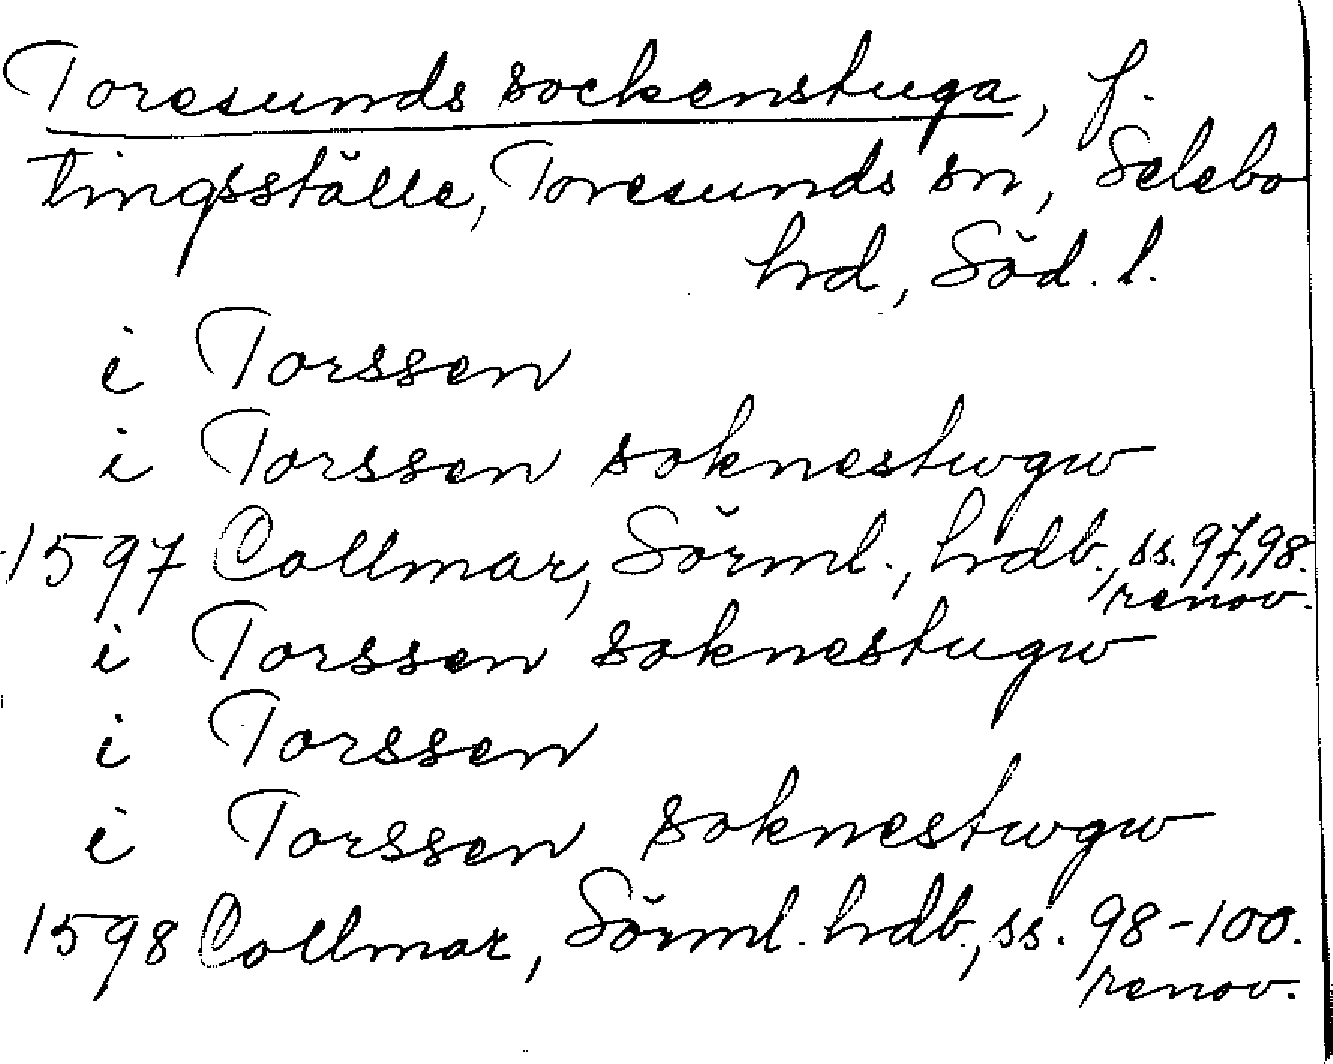 Toresunds sockenstuga, f.
tingsställe, Toresunds sn, Selebo
hrd, Söd. l.
i Torssen
i Torssen soknestwgw
1597 Collmar, Sörml., hrdb., ss. 97, 98.
renov.
i Torssen soknestugw
i Torssen
i Torssen soknestwgw
1598 Collmar, Sörml. hrdb., ss. 98-100.
renov.